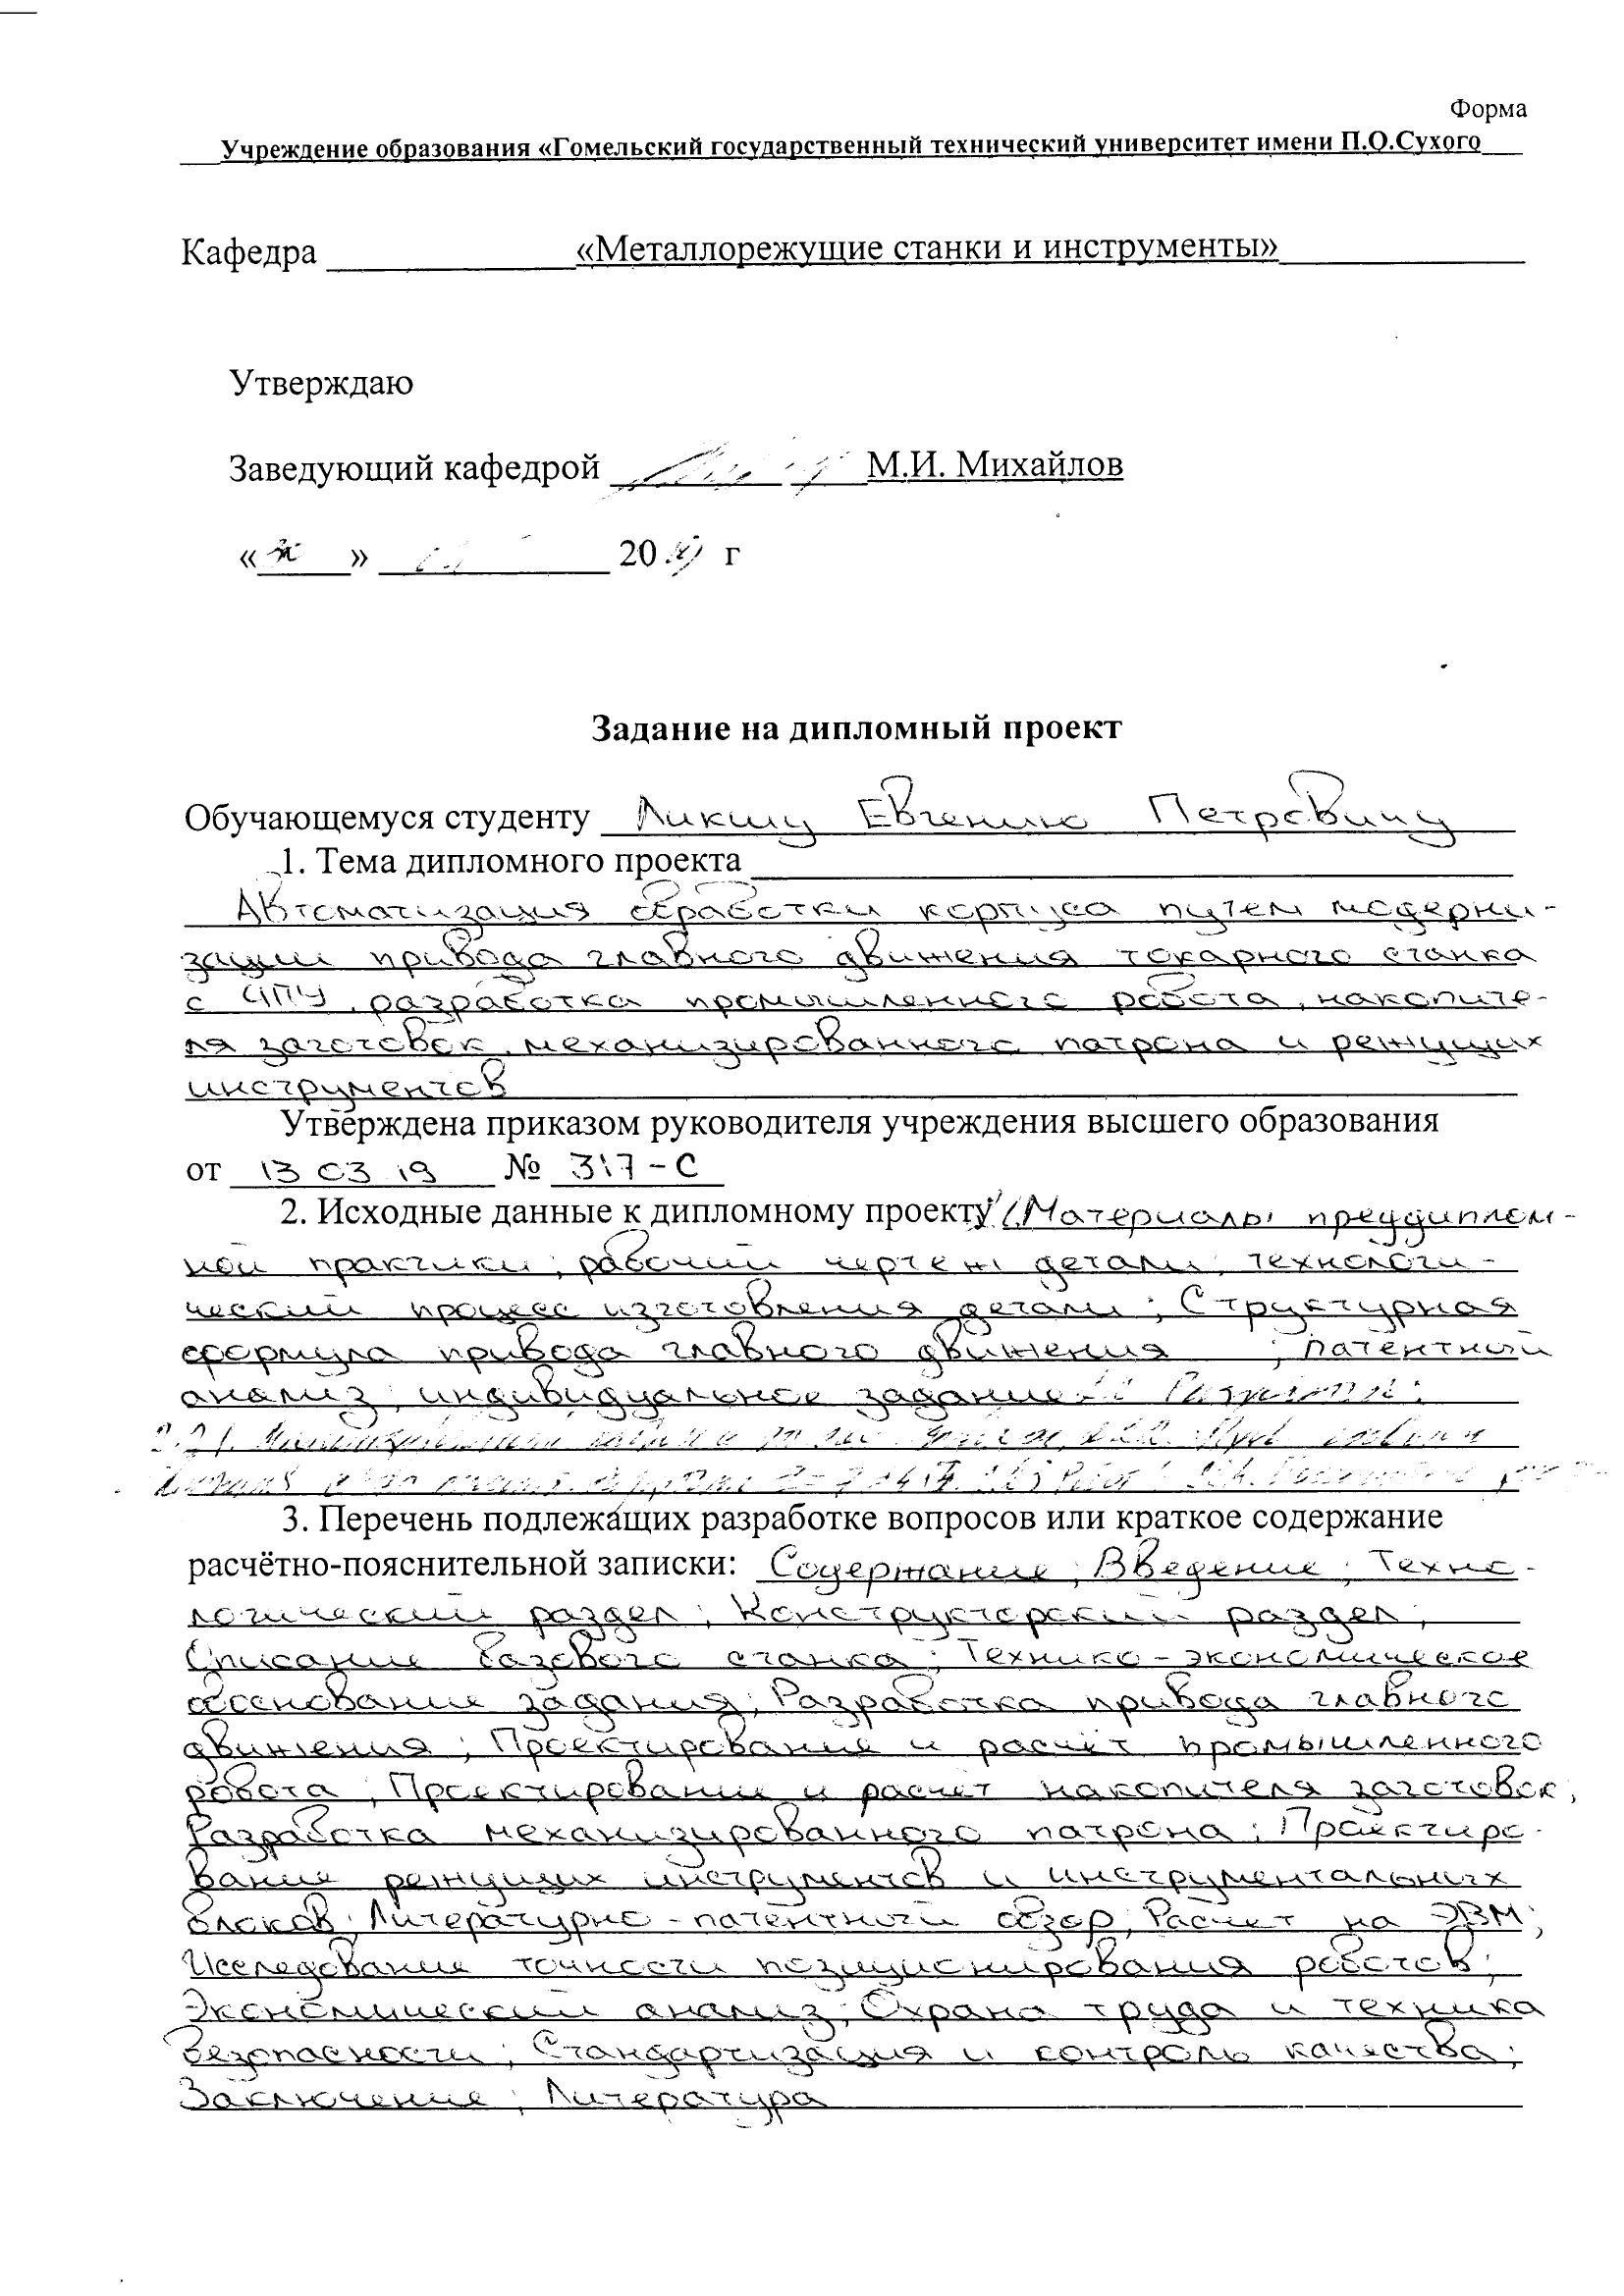 Форма
Учреждение образования «Гомельский государственный технический университет имени П.О.Сухого
Кафедра «Металлорежущие станки и инструменты»
Утверждаю
Заведующий кафедрой М.И. Михайлов
« » 20 г
Задание на дипломный проект
Обучающемуся студенту Ликшу Евгению Петровичу
1. Тема дипломного проекта
Автоматизация обработки корпуса путем модерни-
зации привода главного движения токарного станка
с ЧПУ, разработка промышленного робота, накопите-
ля заготовок, механизированного патрона и режущих
инструментов
Утверждена приказом руководителя учреждения высшего образования
от 13 03 19 № 317-С
2. Исходные данные к дипломному проекту Материалы преддиплом-
ной практики; рабочий чертеж детали; технологи-
ческий процесс изготовления детали; Структурная
формула привода главного движения ; патентный
анализ; индивидуальное задание
3. Перечень подлежащих разработке вопросов или краткое содержание
расчётно-пояснительной записки: Содержание; Введение; Техно-
логический раздел; Конструкторский раздел;
Описание базового станка; Технико-экономическое
обоснование задания; Разработка привода главного
движения; Проектирование и расчёт промышленного
робота; Проектирование и расчет накопителя заготовок;
Разработка механизированного патрона; Проектиро-
вание режущих инструментов и инструментальных
блоков; Литературно-патентный обзор; Расчет на ЭВМ;
Исследование точности позиционирования роботов;
Экономический анализ; Охрана труда и техника
безопасности; Стандартизация и контроль качества;
Заключение; Литература